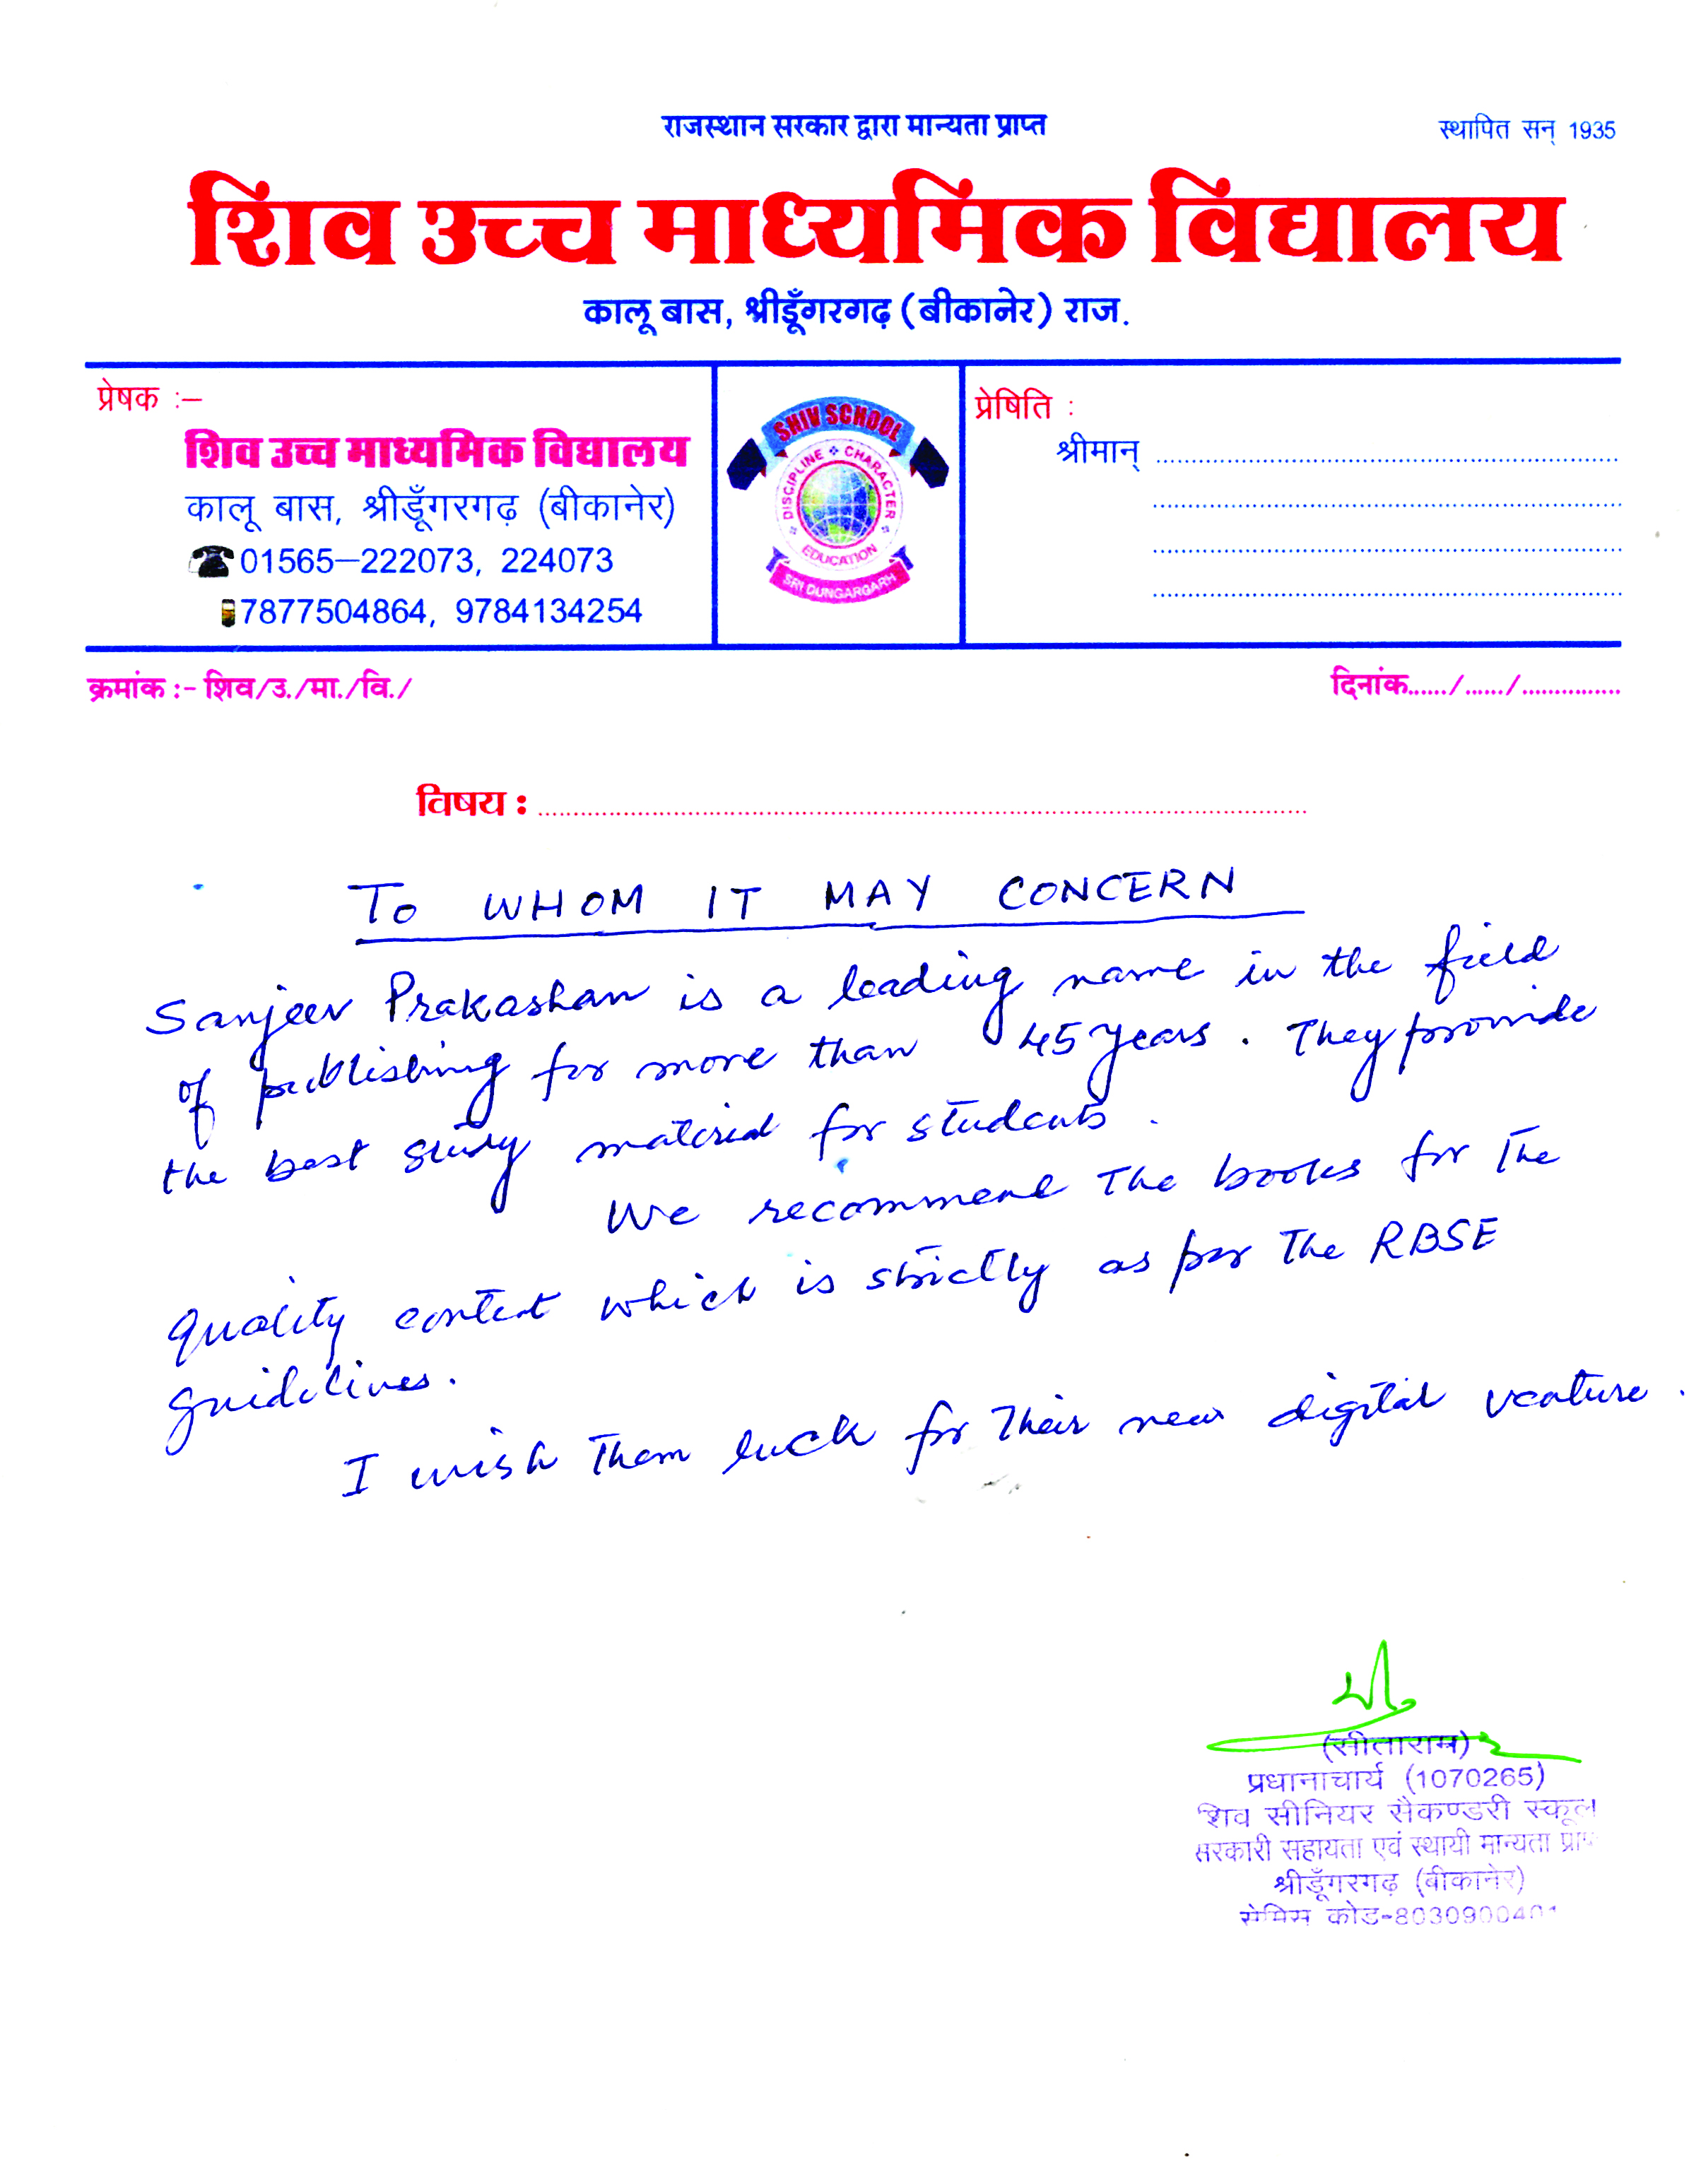 राजस्थान सरकार द्वारा मान्यता प्राप्त
स्थापित सन् 1935
शिव उच्च माध्यमिक विद्यालय
कालू बास, श्रीडूँगरगढ़ (बीकानेर) राज.
प्रेषक :–
शिव उच्च माध्यमिक विद्यालय
कालू बास, श्रीडूँगरगढ़ (बीकानेर)
01565–222073, 224073
7877504864, 9784134254
SHIV SCHOOL
DISCIPLINE CHARACTER
EDUCATION
SRI DUNGARGARH
प्रेषिति :
श्रीमान् ....................
क्रमांक :- शिव/उ./मा./वि./
दिनांक....../....../...............
विषय : ....................
To WHOM IT MAY CONCERN
Sanjeev Prakashan is a leading name in the field
of publishing for more than 45 years. They provide
the best study material for students.
We recommend The books for The
quality content which is strictly as per The RBSE
guidelines.
I wish Them luck for Their new digital venture.
(सीताराम)
प्रधानाचार्य (1070265)
शिव सीनियर सैकण्डरी स्कूल
सरकारी सहायता एवं स्थायी मान्यता प्राप
श्रीडूँगरगढ़ (बीकानेर)
सेमिस कोड-8030900401